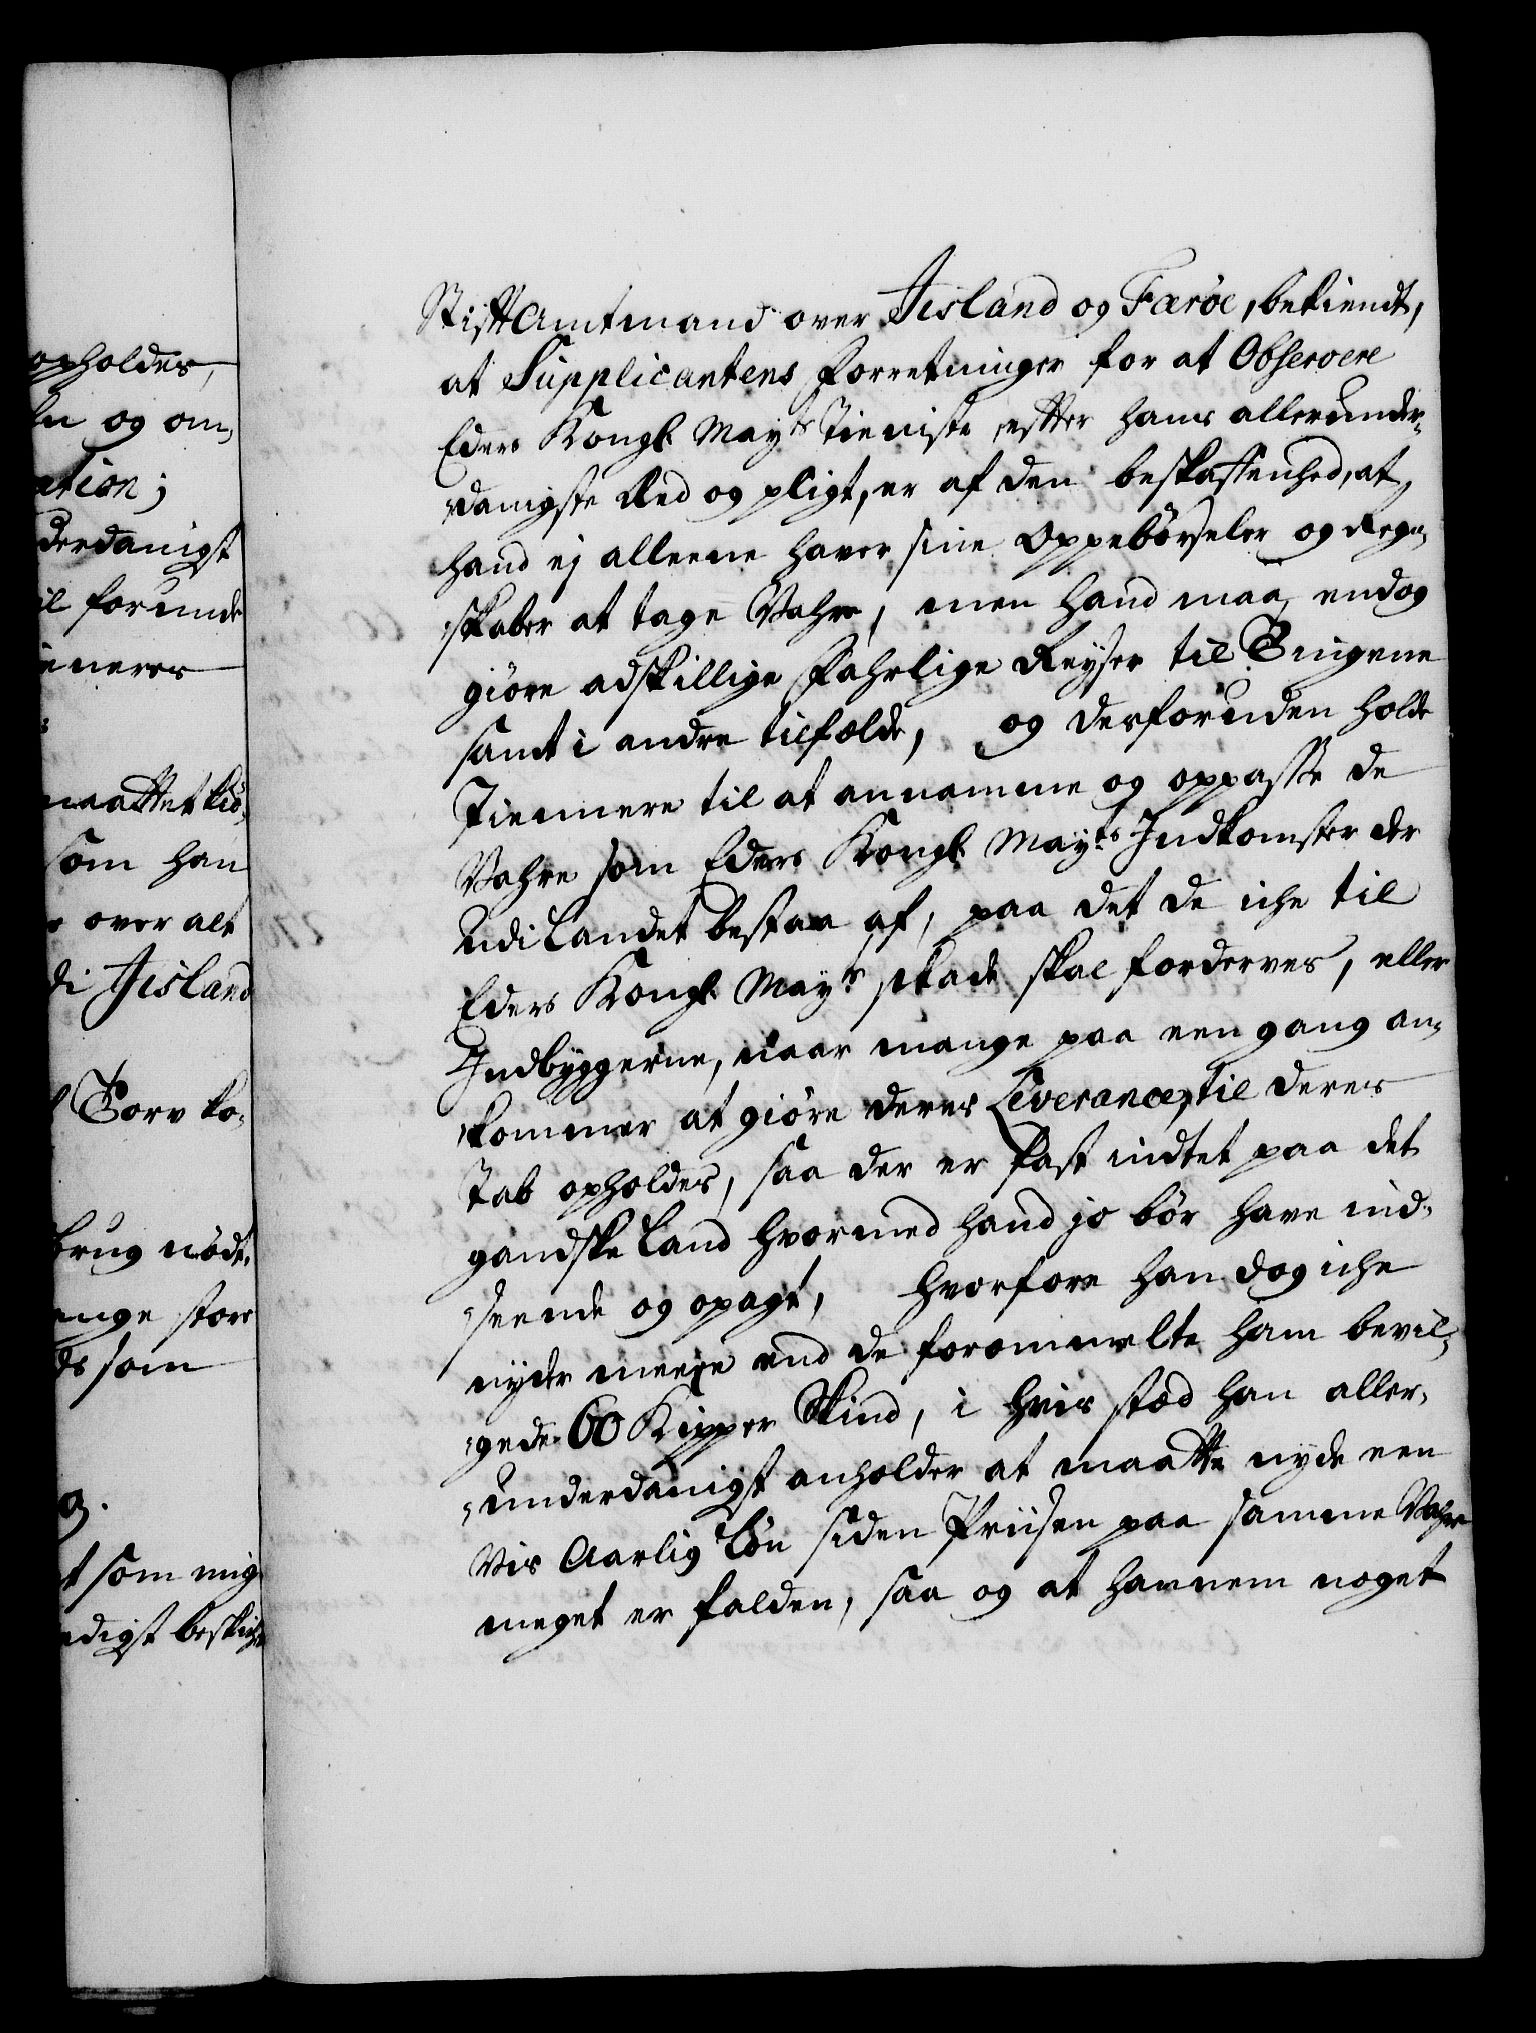 opholdes,
og om-
ation;
derdanigst
il forunde
eneres
maattet kiö-
som han
over alt
di Jisland
Torv ko-
brug nödt-
ange store
ds som
g.
t som mig
Stift Amtmand over Jisland og Færöe, bekiendt,
at Supplicantens Forretninger for at Observere
Eders Kongl. May.ts Tieniste efter hans allerunder-
danigste Eed og pligt, er af den beskaffenhed, at
hand ej alleene haver sine Oppebörseler og Regn-
skaber at tage Vahre, men hand maa, endog
giöre adskillige Fahrlige Reyser til Tingene
samt i andre tilfælde, og desforuden holde
Tiennere til at annamme og oppasse de
Vahre som Eders Kongl. May.ts Indkomster der
udi Landet bestaa af, paa det de iche til
Eders Kongl. May.ts skade skal forderves, eller
Indbyggerne, naar mange paa een gang an-
kommer at giöre deres Leverance, til deres
Tab opholdes, saa der er fast indtet paa det
gandske Land hvormed hand jo bör have ind-
seende og opagt, hvorfore han dog iche
nyder meere end de forommelte ham bevil-
gede 60 Kipper Skind, i hvis stæd han aller-
underdanigst anholder at maatte nyde een
Vis Aarlig Lön siden Priisen paa samme Vahre
meget er falden, saa og at havnem noget